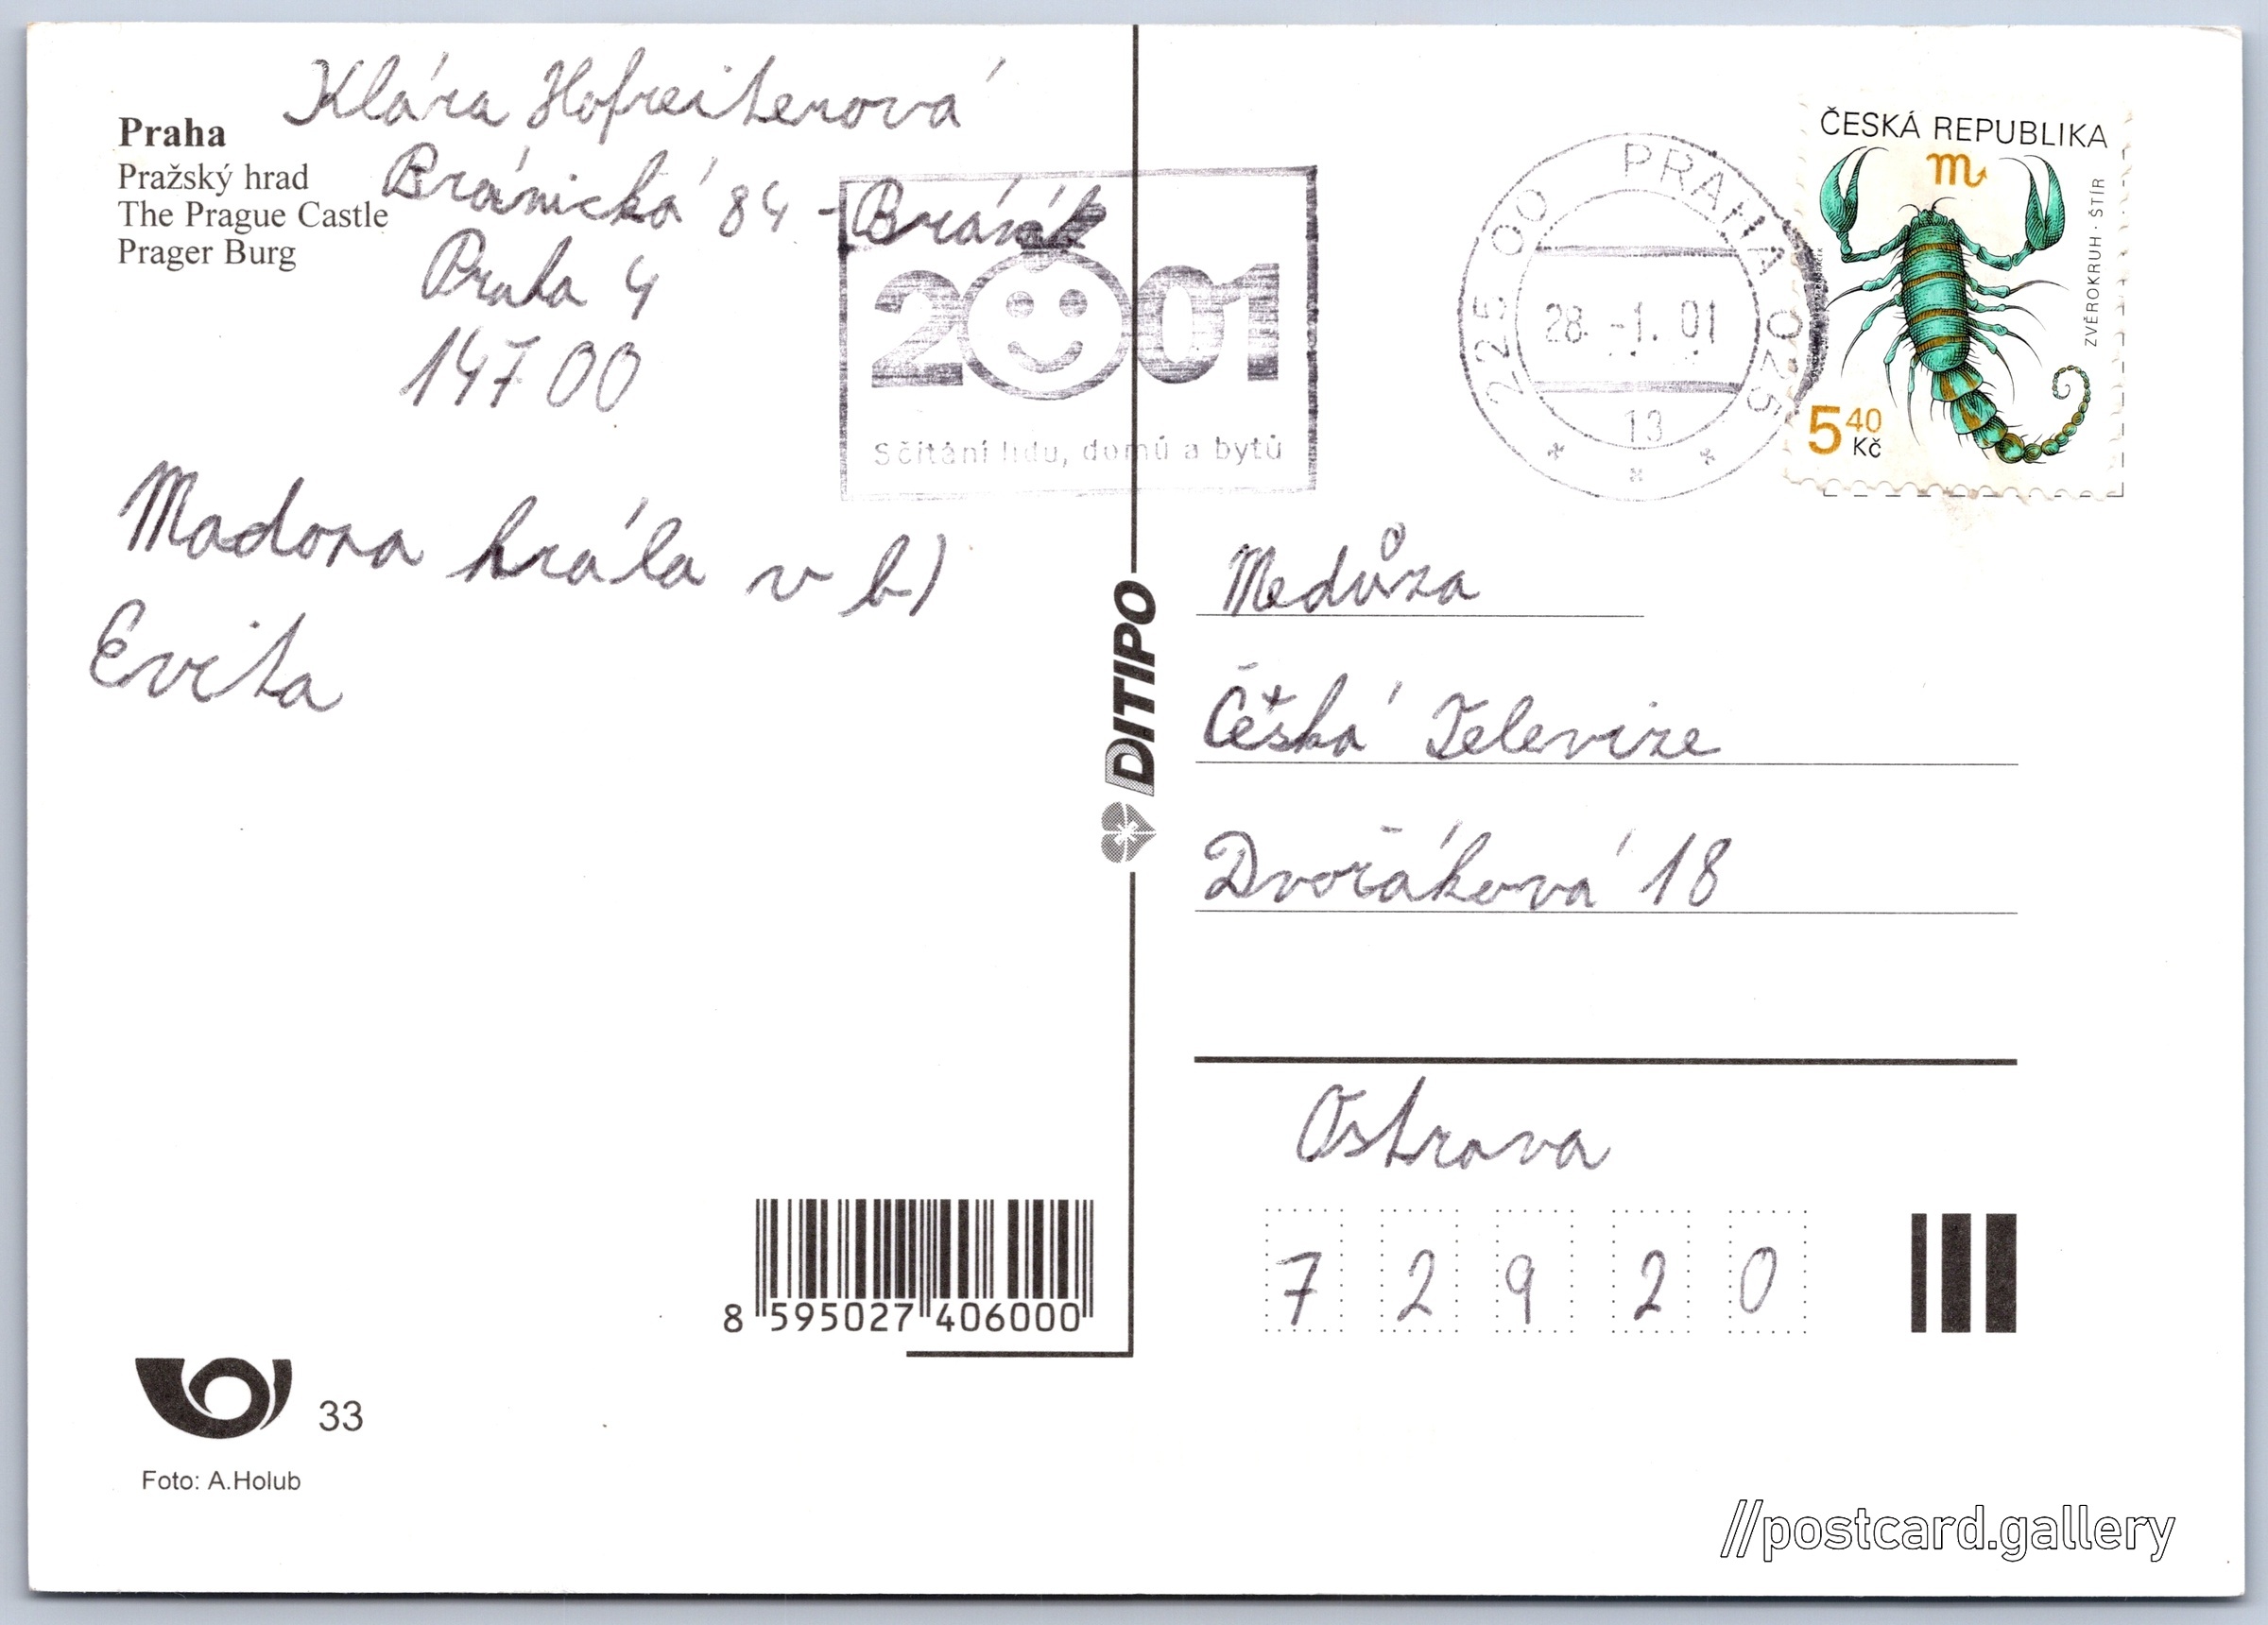 Klára Hofreiterová
Praha
Pražský hrad
The Prague Castle
Prager Burg
Bránická 84 - Bráník
Praha 4
147 00
2001
Sčítání lidu, domů a bytů
225 00 PRAHA 025
28.-1.01
13
ČESKÁ REPUBLIKA
ZVĚROKRUH · ŠTÍR
5 40 Kč
Madona hrála v b)
Evita
DITIPO
Medůza
Česká Televize
Dvořáková 18
Ostrava
7 2 9 2 0
8 595027 406000
33
Foto: A.Holub
//postcard.gallery